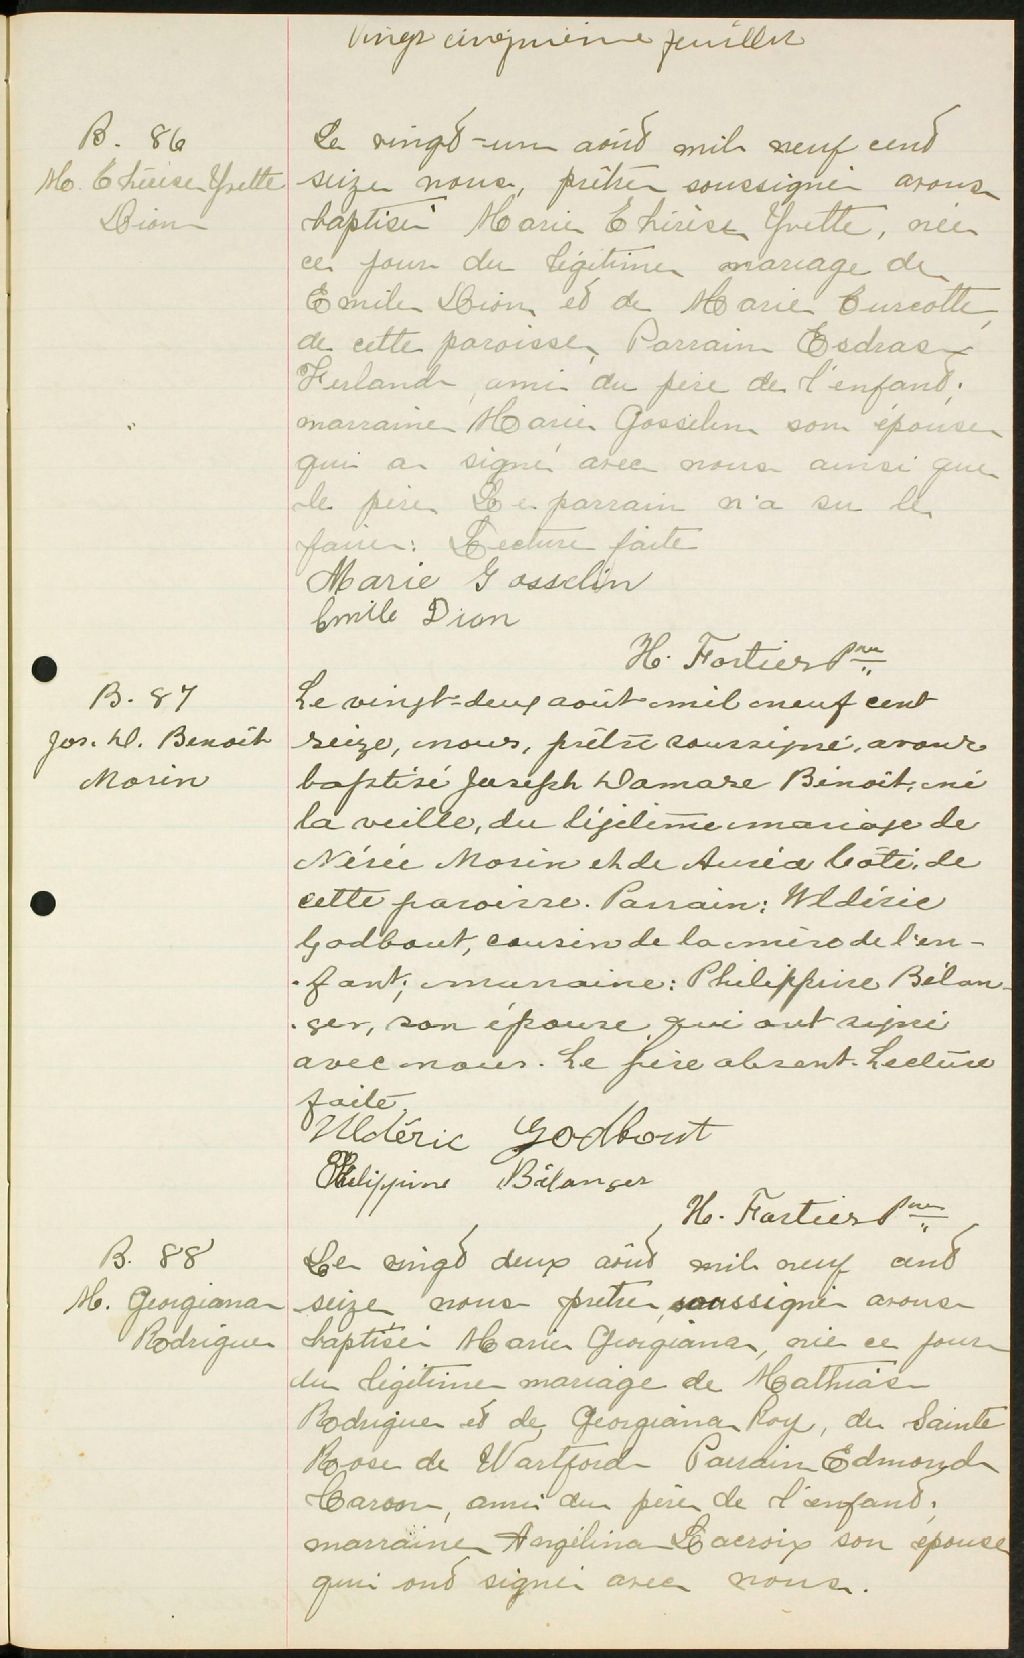 Vingt cinquième feuillet
B. 86
M. Thérèse Yvette
Dion
Le vingt-un août mil neuf cent
seize nous, prêtre soussigné avons
baptisé Marie Thérèse Yvette, née
ce jour du légitime mariage de
Emile Dion et de Marie Turcotte,
de cette paroisse, Parrain Esdras
Ferland, ami du père de l'enfant;
marraine Marie Gosselin son épouse
qui a signé avec nous ainsi que
le père Le parrain n'a su le
faire: Lecture faite
Marie Gosselin
Emile Dion
H. Fortier Ptre
B. 87
Jos. D. Benoît
Morin
Le vingt-deux août mil neuf cent
seize, nous, prêtre soussigné, avons
baptisé Joseph Damase Benoit, né
la veille, du légitime mariage de
Nérée Morin et de Auréa Côté, de
cette paroisse. Parrain: Uldéric
Godbout, cousin de la mère de l'en-
-fant; marraine: Philippine Bélan-
-ger, son épouse, qui ont signé
avec nous. Le père absent. Lecture
faite.
Uldéric Godbout
Philippine Bélanger
H. Fortier Ptre
B. 88
M. Georgiana
Rodrigue
Le vingt deux août mil neuf cent
seize nous prêtre, soussigné avons
baptisé Marie Georgiana, née ce jour
du légitime mariage de Mathias
Rodrigue et de Georgiana Roy, de Sainte
Rose de Watford Parrain Edmond
Caron, ami du père de l'enfant;
marraine Angélina Lacroix son épouse
qui ont signé avec nous.